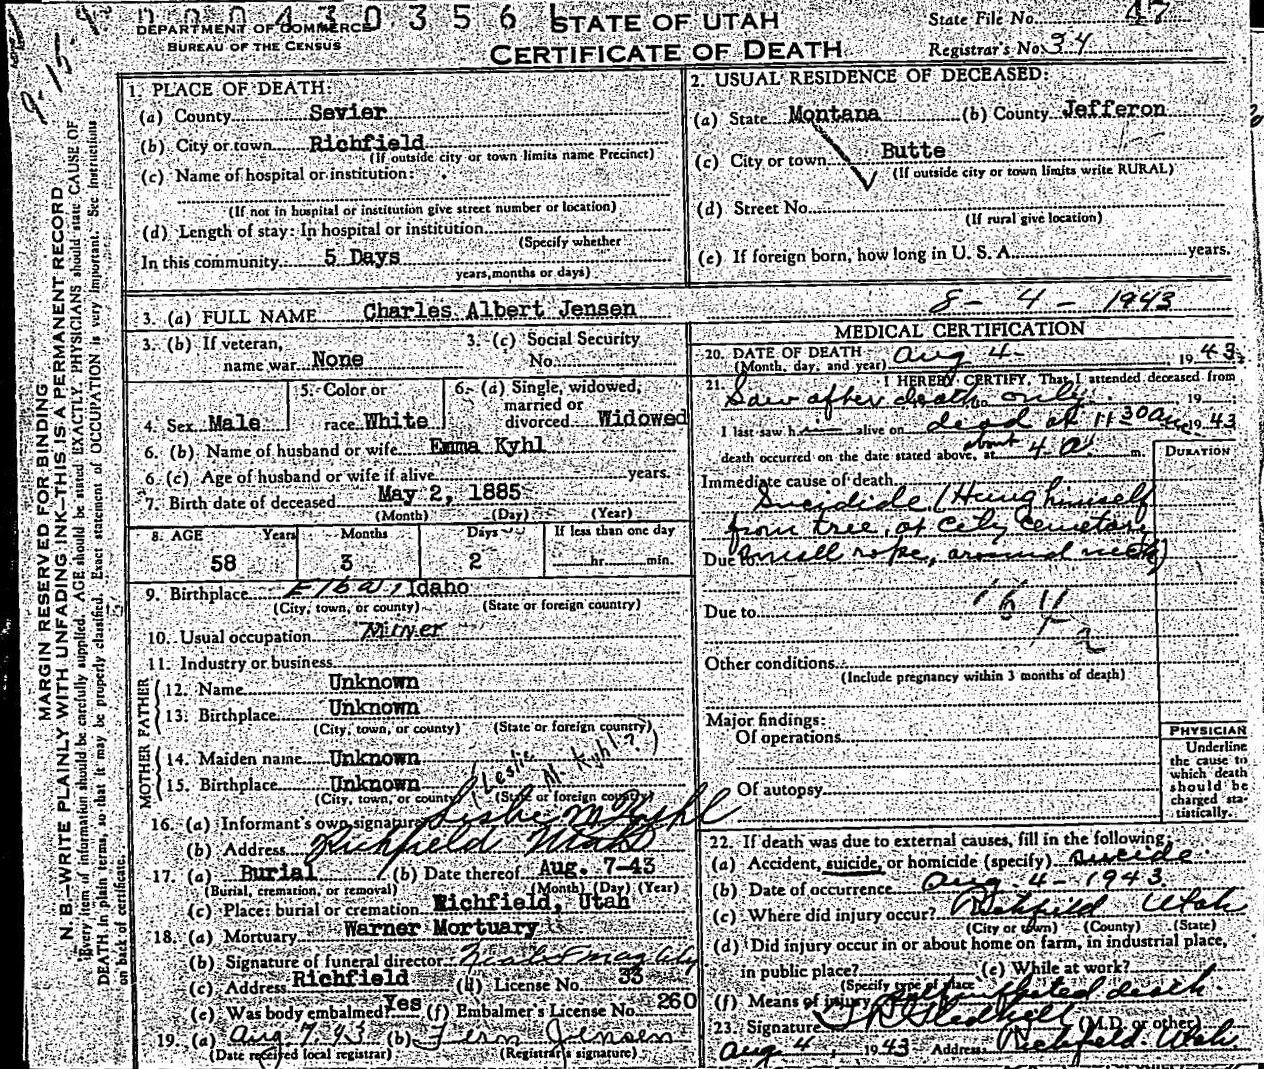 0 4 3 0 3 5 6
DEPARTMENT OF COMMERCE
BUREAU OF THE CENSUS
STATE OF UTAH
CERTIFICATE OF DEATH
State File No. 47
Registrar's No. 34
9-15-4
MARGIN RESERVED FOR BINDING
N. B.—WRITE PLAINLY WITH UNFADING INK—THIS IS A PERMANENT RECORD
Every item of information should be carefully supplied. AGE should be stated EXACTLY. PHYSICIANS should state CAUSE OF
DEATH in plain terms, so that it may be properly classified. Exact statement of OCCUPATION is very important. See instructions
on back of certificate.
1. PLACE OF DEATH:
(a) County Sevier
(b) City or town Richfield
(If outside city or town limits name Precinct)
(c) Name of hospital or institution:
(If not in hospital or institution give street number or location)
(d) Length of stay: In hospital or institution
(Specify whether
In this community 5 Days
years, months or days)
2. USUAL RESIDENCE OF DECEASED:
(a) State Montana (b) County Jefferon
(c) City or town Butte
(If outside city or town limits write RURAL)
(d) Street No.
(If rural give location)
(e) If foreign born, how long in U. S. A. years.
3. (a) FULL NAME Charles Albert Jensen 8-4-1943
3. (b) If veteran,
name war None
3. (c) Social Security
No.
4. Sex Male
5. Color or
race White
6. (a) Single, widowed,
married or
divorced Widowed
6. (b) Name of husband or wife Emma Kyhl
6. (c) Age of husband or wife if alive years.
7. Birth date of deceased May 2, 1885
(Month) (Day) (Year)
8. AGE Years Months Days If less than one day
58 3 2 hr. min.
9. Birthplace Elba, Idaho
(City, town, or county) (State or foreign country)
10. Usual occupation Miner
11. Industry or business
FATHER
12. Name Unknown
13. Birthplace Unknown
(City, town, or county) (State or foreign country)
MOTHER
14. Maiden name Unknown
15. Birthplace Unknown
(City, town, or county) (State or foreign country)
(Leslie M. Kyhl?)
16. (a) Informant's own signature Leslie M Kyhl
(b) Address Richfield Utah
17. (a) Burial (b) Date thereof Aug. 7-43
(Burial, cremation, or removal) (Month) (Day) (Year)
(c) Place: burial or cremation Richfield, Utah
18. (a) Mortuary Warner Mortuary
(b) Signature of funeral director
(c) Address Richfield (d) License No. 33
(e) Was body embalmed? Yes (f) Embalmer's License No. 260
19. (a) Aug. 7, 43 (b) Fern Jensen
(Date received local registrar) (Registrar's signature)
MEDICAL CERTIFICATION
20. DATE OF DEATH Aug 4- 1943
(Month, day, and year)
21. I HEREBY CERTIFY, That I attended deceased from
Saw after death only 19
I last saw h i alive on dead at 11 30 a 1943
death occurred on the date stated above, at about 4 a m.
DURATION
Immediate cause of death
Suicidide (Hung himself
from tree, at City Cemetary
Due to small rope, around neck)
Due to
Other conditions
(Include pregnancy within 3 months of death)
Major findings:
Of operations
Of autopsy
PHYSICIAN
Underline
the cause to
which death
should be
charged sta-
tistically.
22. If death was due to external causes, fill in the following:
(a) Accident, suicide, or homicide (specify) Suicide
(b) Date of occurrence Aug. 4-1943
(c) Where did injury occur? Richfield Utah
(City or town) (County) (State)
(d) Did injury occur in or about home on farm, in industrial place,
in public place? (e) While at work?
(Specify type of place
(f) Means of injury death.
23. Signature (M.D. or other)
Aug 4, 1943 Address Richfield Utah